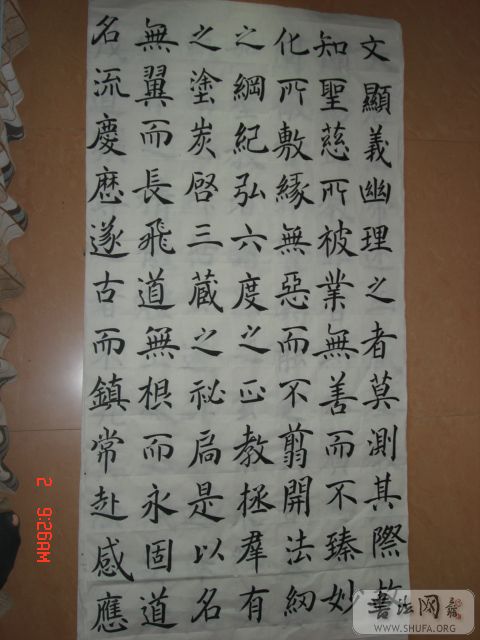 文顯義幽理之者莫測其際故
知聖慈所被業無善而不臻妙
化所敷緣無惡而不翦開法網
之綱紀弘六度之正教拯羣有
之塗炭啓三藏之祕扃是以名
無翼而長飛道無根而永固道
名流慶歷遂古而鎮常赴感應
2 9:26AM
書法网
WWW.SHUFA.ORG